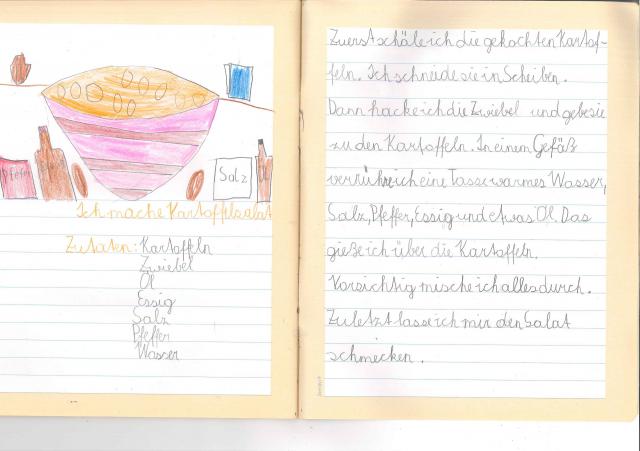 Pfeffer
Salz
Ich mache Kartoffelsalat
Zutaten: Kartoffeln
Zwiebel
Öl
Essig
Salz
Pfeffer
Wasser
Zuerst schäle ich die gekochten Kartof-
feln. Ich schneide sie in Scheiben.
Dann hacke ich die Zwiebel und gebe sie
zu den Kartoffeln. In einem Gefäß
verrühre ich eine Tasse warmes Wasser,
Salz, Pfeffer, Essig und etwas Öl. Das
gieße ich über die Kartoffeln.
Vorsichtig mische ich alles durch.
Zuletzt lasse ich mir den Salat
schmecken.